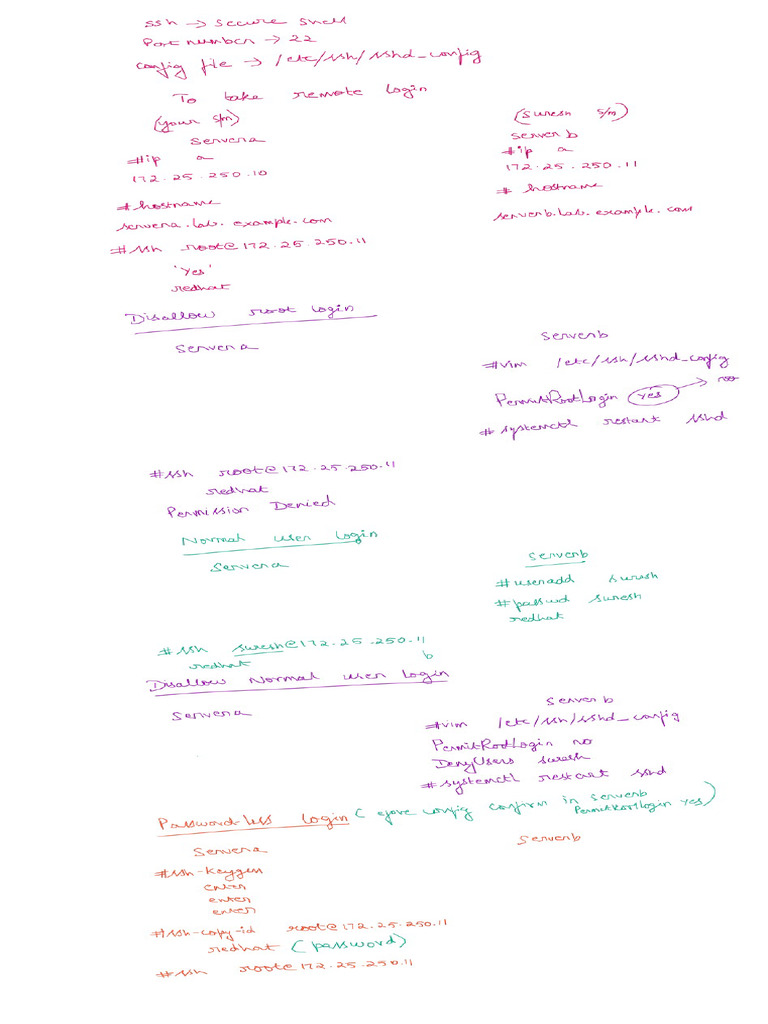 ssh → secure shell
Port number → 22
config file → /etc/ssh/sshd_config
To take remote login
(your s/m)
servera
#ip a
172.25.250.10
#hostname
servera.lab.example.com
#ssh root@172.25.250.11
'yes'
redhat
(suresh s/m)
serverb
#ip a
172.25.250.11
# hostname
serverb.lab.example.com
Disallow root login
servera
serverb
#vim /etc/ssh/sshd_config
PermitRootLogin yes → no
# systemctl restart sshd
#ssh root@172.25.250.11
redhat
Permission Denied
Normal user login
servera
serverb
#useradd suresh
#passwd suresh
redhat
#ssh suresh@172.25.250.11
redhat
b
Disallow Normal user login
servera
serverb
#vim /etc/ssh/sshd_config
PermitRootLogin no
DenyUsers suresh
#systemctl restart sshd
Password-less login ( config confirm in serverb
PermitRootlogin yes)
servera
serverb
#ssh-keygen
enter
enter
enter
#ssh-copy-id root@172.25.250.11
redhat (password)
#ssh root@172.25.250.11